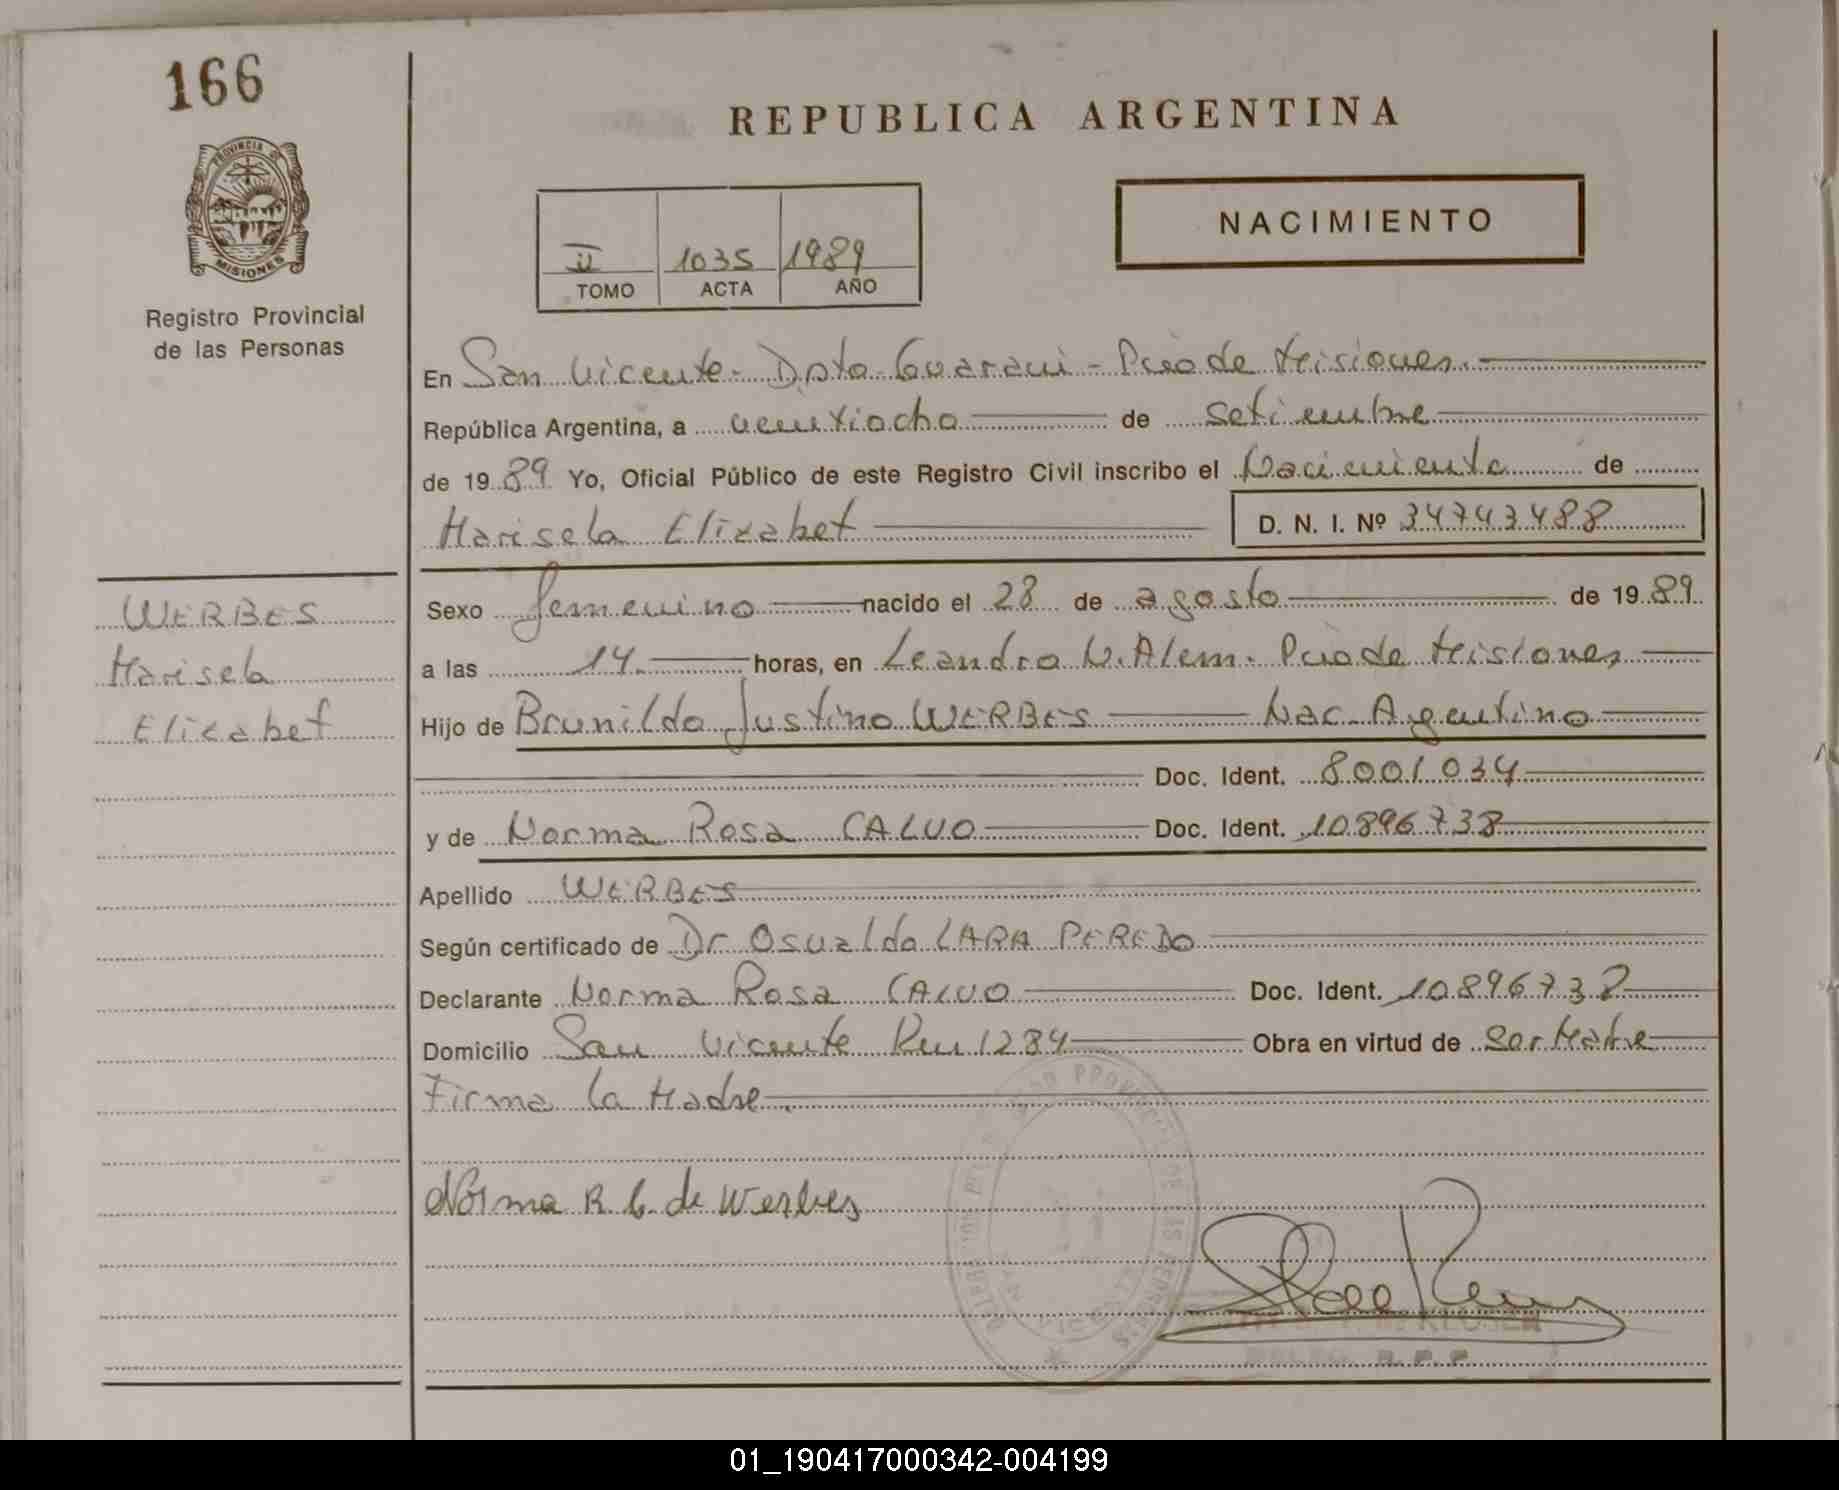 166
REPUBLICA ARGENTINA
PROVINCIA DE
MISIONES
Registro Provincial
de las Personas
NACIMIENTO
II 1035 1989
TOMO ACTA AÑO
En San Vicente - Dpto Guarani - Pcia de Misiones.
República Argentina, a veintiocho de setiembre
de 1989 Yo, Oficial Público de este Registro Civil inscribo el Nacimiento de
Marisela Elizabet D. N. I. Nº 34743488
WERBES
Marisela
Elizabet
Sexo femenino nacido el 28 de agosto de 1989
a las 14 horas, en Leandro N. Alem. Pcia de Misiones
Hijo de Brunildo Justino WERBES Nac. Argentino
Doc. Ident. 8001034
y de Norma Rosa CALVO Doc. Ident. 10896738
Apellido WERBES
Según certificado de Dr Osvaldo LARA PEREDO
Declarante Norma Rosa CALVO Doc. Ident. 10896738
Domicilio San Vicente Km 1284 Obra en virtud de Ser Madre
Firma la Madre.
Norma R. C. de Werbes
DELEG. R. P. P.
01_190417000342-004199